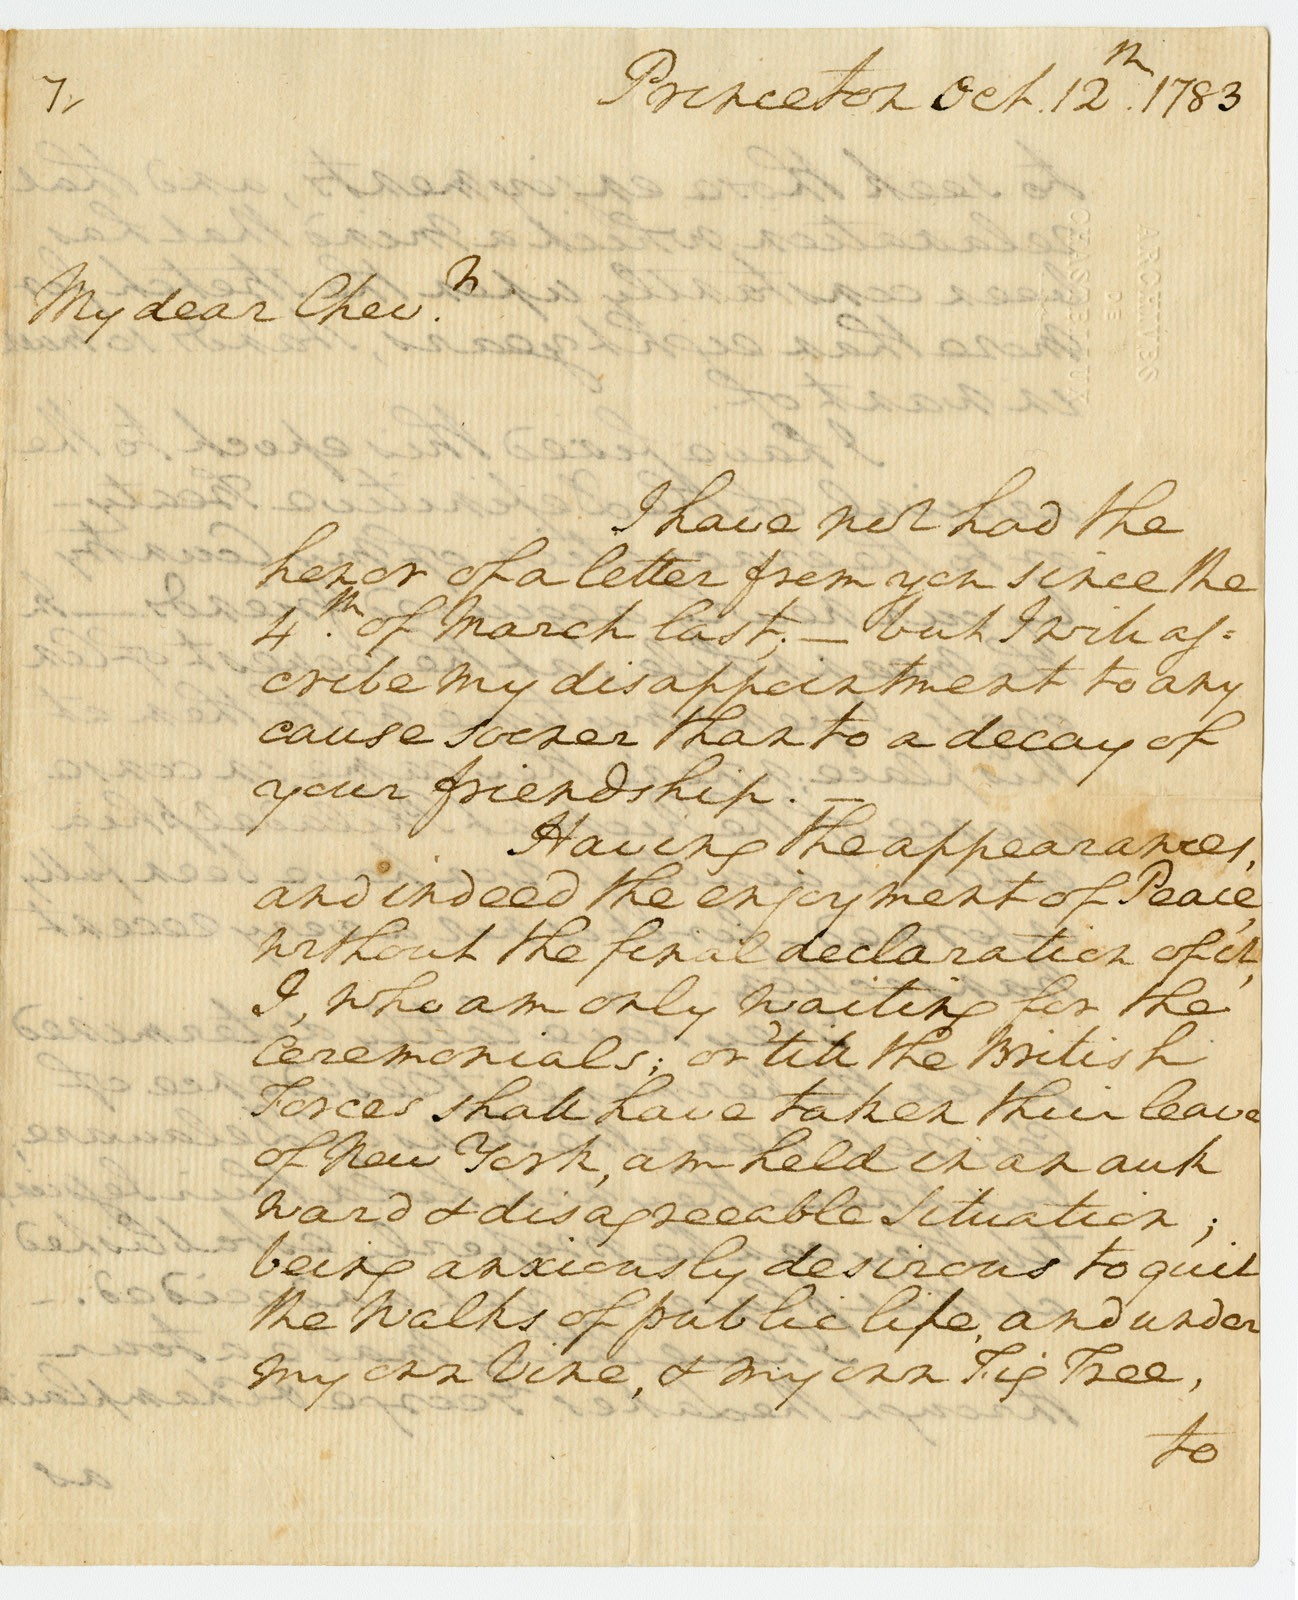 7,
Princeton Oct. 12th. 1783
My dear Chevr.
I have not had the
honor of a letter from you since the
4th. of March last; — but I will as=
cribe my disappointment to any
cause sooner than to a decay of
your friendship. —
Having the appearances,
and indeed the enjoyment of Peace,
without the final declaration of it,
I, who am only waiting for the
ceremonials; or 'till the British
Forces shall have taken their leave
of New York, am held in an auk
ward & disagreeable situation;
being anxiously desirous to quit
the walks of public life, and under
my own Vine, & my own Fig Tree,
to
ARCHIVES
DE
CHASTELLUX